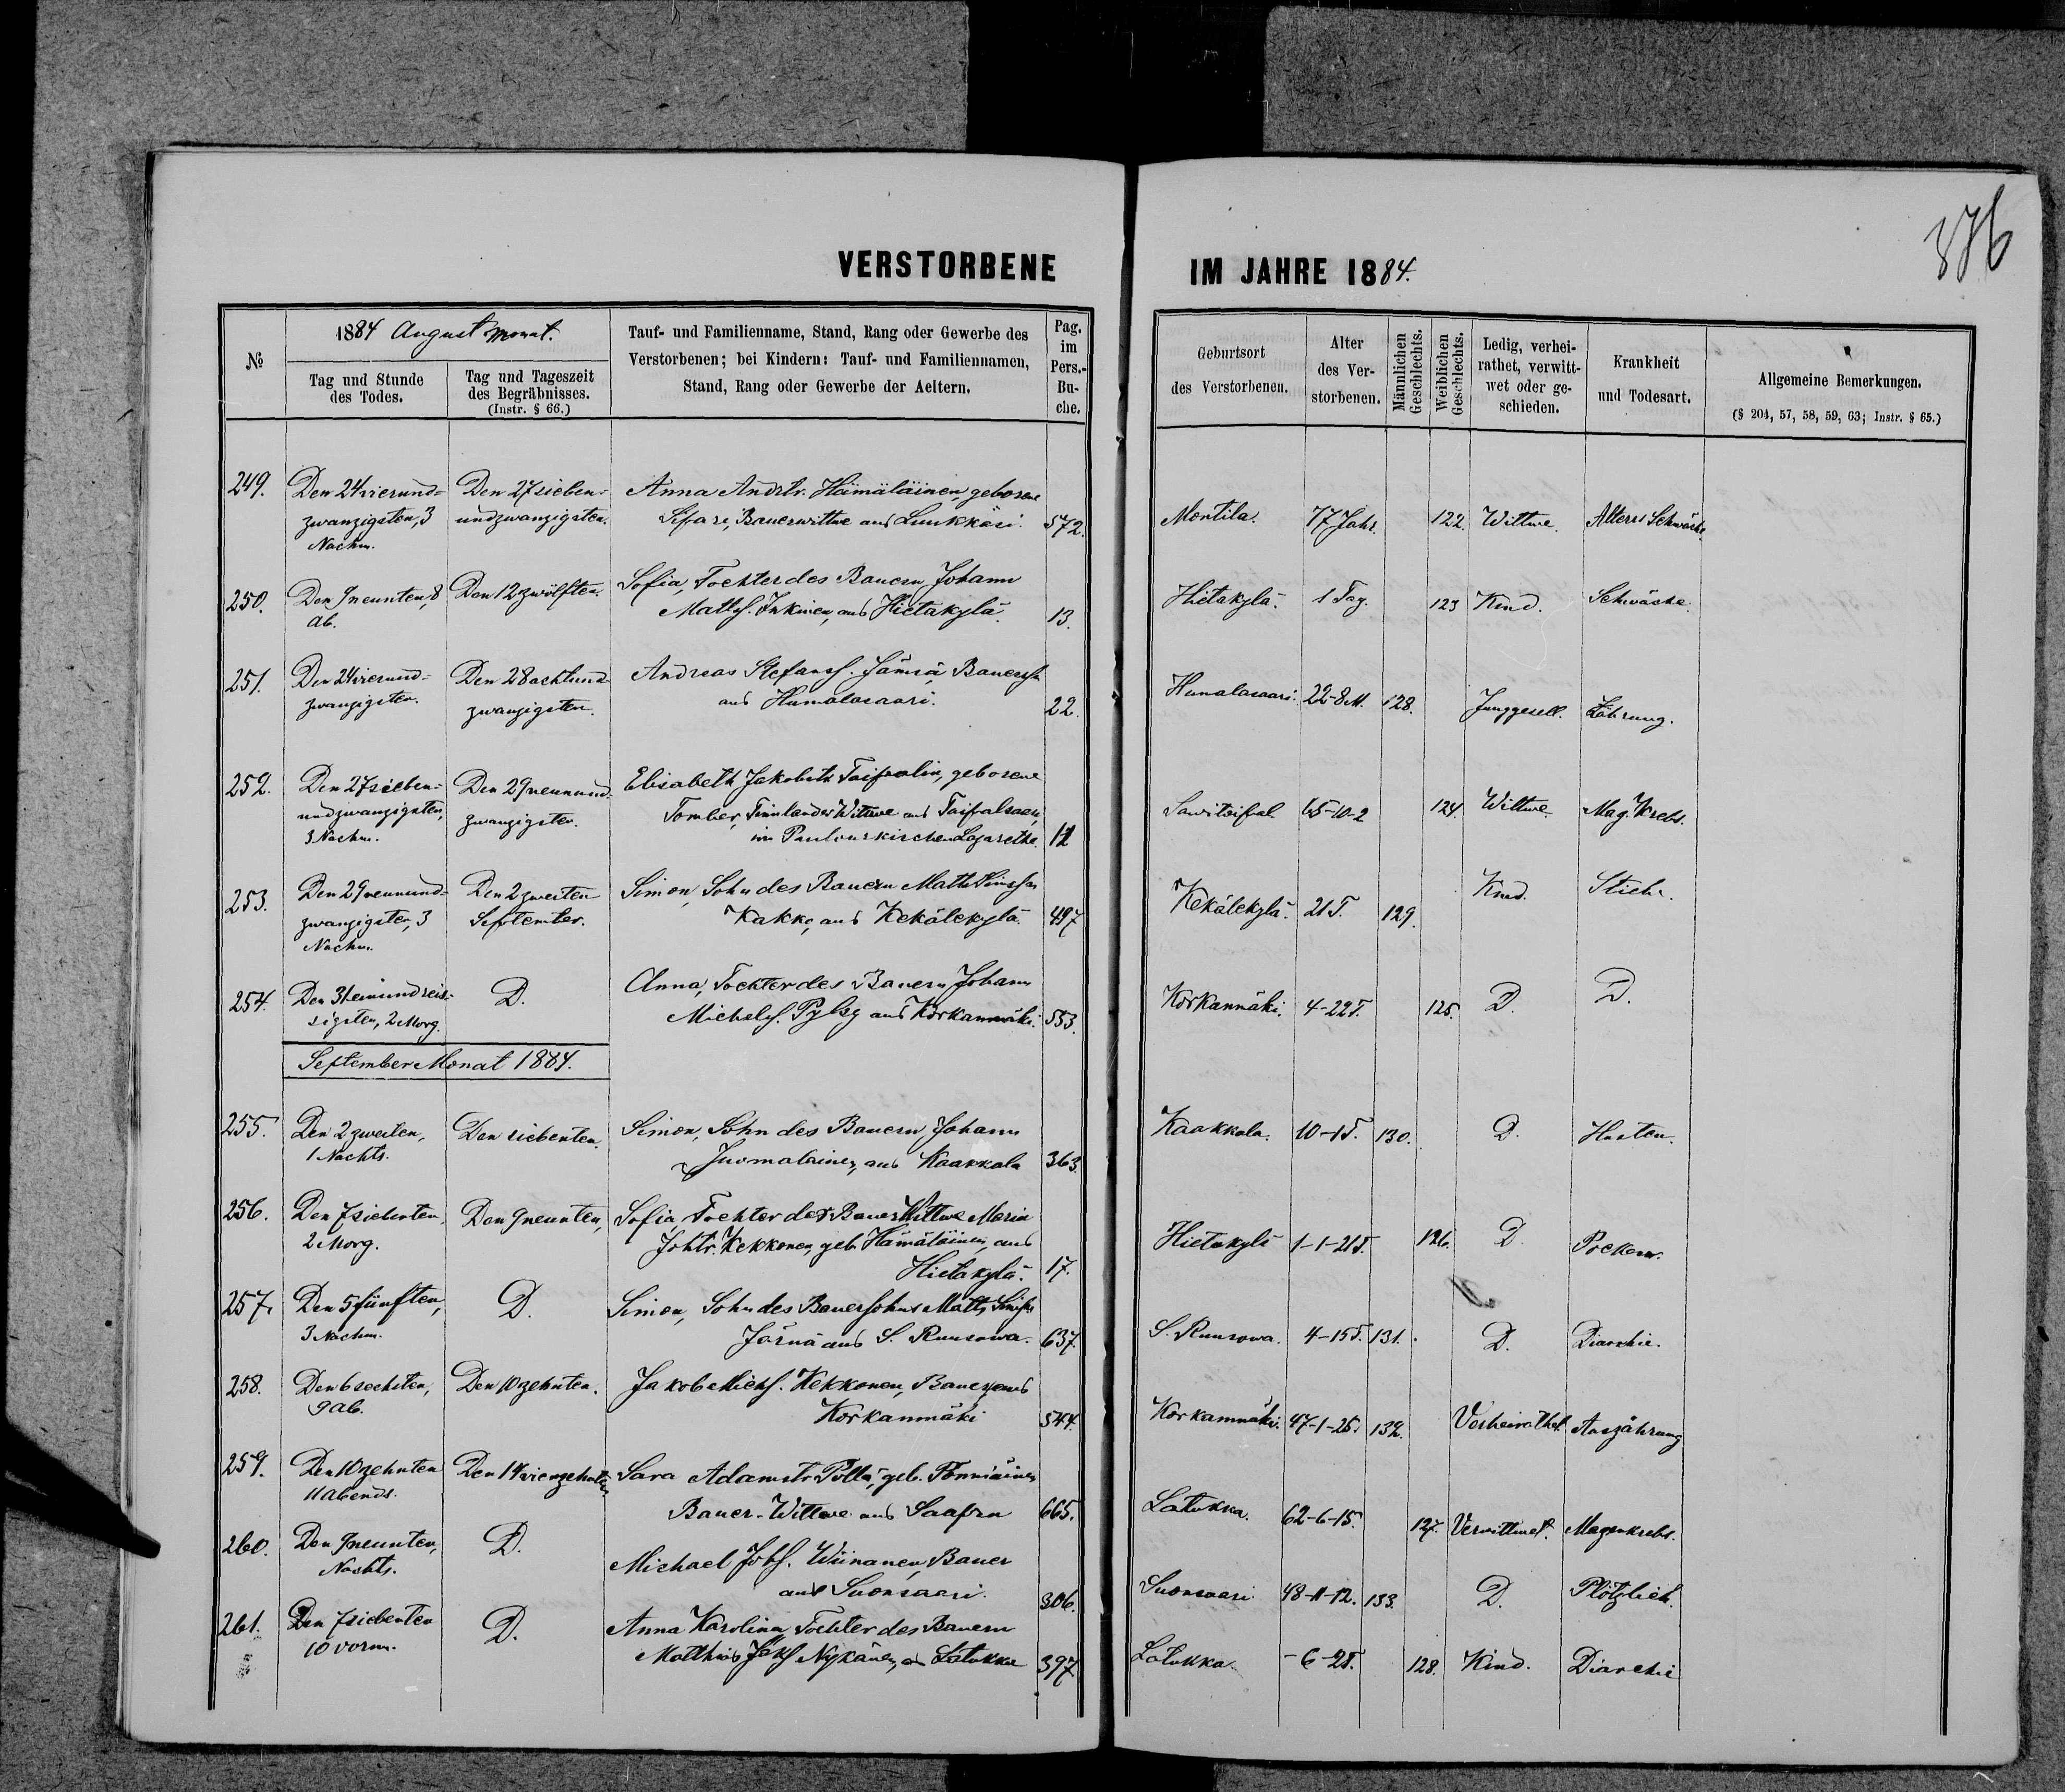 376
VERSTORBENE IM JAHRE 1884.
№
1884 August Monat.
Tag und Stunde des Todes.
Tag und Tageszeit des Begräbnisses. (Instr. § 66.)
Tauf- und Familienname, Stand, Rang oder Gewerbe des
Verstorbenen; bei Kindern: Tauf- und Familiennamen,
Stand, Rang oder Gewerbe der Aeltern.
Pag. im Pers.-Bu-che.
Geburtsort des Verstorbenen.
Alter des Ver-storbenen.
Männlichen Geschlechts.
Weiblichen Geschlechts.
Ledig, verhei-rathet, verwitt-wet oder ge-schieden.
Krankheit und Todesart.
Allgemeine Bemerkungen.
(§ 204, 57, 58, 59, 63; Instr. § 65.)
249. Den 24 vierund= Den 27 sieben- Anna Andrtr. Hämäläinen, geborene
zwanzigsten, 3 undzwanzigsten. Bauerwittwe aus 572. Montila. 77 Jahr. 122. Wittwe. Alters Schwäche.
Nachm.
250. Den 9 neunten, 8 Den 12 zwölften. Sofia, Tochter des Bauern Johann
Ab. Matths. Inkinen, aus Hietakylä. 13. Hietakylä. 1 Tag. 123 Kind. Schwäche.
251. Den 24 vierund= Den 28 achtund- Andreas Stefanss. Jämsä
zwanzigsten. zwanzigsten. aus Humalasaari. 22. Humalasaari. 22-8 M. 128. Junggesell. Zährung.
252. Den 27 sieben= Den 29 neunund- Elisabeth Jakobstr. geborene
undzwanzigsten, zwanzigsten. Wittwe aus 124. Wittwe. Mag. Krebs.
3 Nachm. im 65-10-2
253. Den 29 neunund= Den 2 zweiten Simon, Sohn des Bauern Matth.
zwanzigsten, 3 September. Kakko, aus Kekälekylä. 497 Kekälekylä. 21 T. 129. Kind. Stiche.
Nachm.
254. Den 31 einundreis- D. Anna, Tochter des Bauern Johann
sigsten, 2 Morg. Michelss. aus Korkanmäki. 553. Korkanmäki. 4-22 T. 125. D. D.
September Monat 1884.
255. Den 2 zweiten, Den siebenten. Simon, Sohn des Bauern Johann
1 Nachts. Juomalainen, aus Kaakkola 363. Kaakkola. 10-1 T. 130. D. Husten.
256. Den 7 siebenten, Den 9 neunten, Sofia, Tochter der Bauer Wittwe Maria
2 Morg. Johtr. Kekkonen, geb. Hämäläinen, aus
Hietakylä. 17. Hietakylä 1-1-21 T. 126. D Pocken.
257. Den 5 fünften, D. Simon, Sohn des Bauersohns Matts
3 Nachm. Järnä aus S. Ruusowa. 637. S. Ruusowa. 4-15 T. 131. D. Diarrhie.
258. Den 6 sechsten, Den 10 zehnten. Jakob Michs. Kekkonen, Bauer, aus
9 Ab. Korkanmäki 544. Korkanmäki. 132. Verheirathet. Auszährung
259. Den 10 zehnten Den 14 vierzehnten Sara Adamstr. Pöllä, geb.
11 Abends. Bauer-Wittwe aus 665. Latukka. 62-6-15. 127. Verwittwet. Magenkrebs.
260. Den 9 neunten, D. Michael Johs. Wiinanen, Bauer
Nachts. aus Suonsaari. 306. Suonsaari 48-11-12. 133. D. Plötzlich.
261. Den 7 siebenten D. Anna Karolina, Tochter des Bauern
10 vorm. Matthias Nykänen, aus Latukka 397 Latukka. -6-21. 128. Kind. Diarrhie